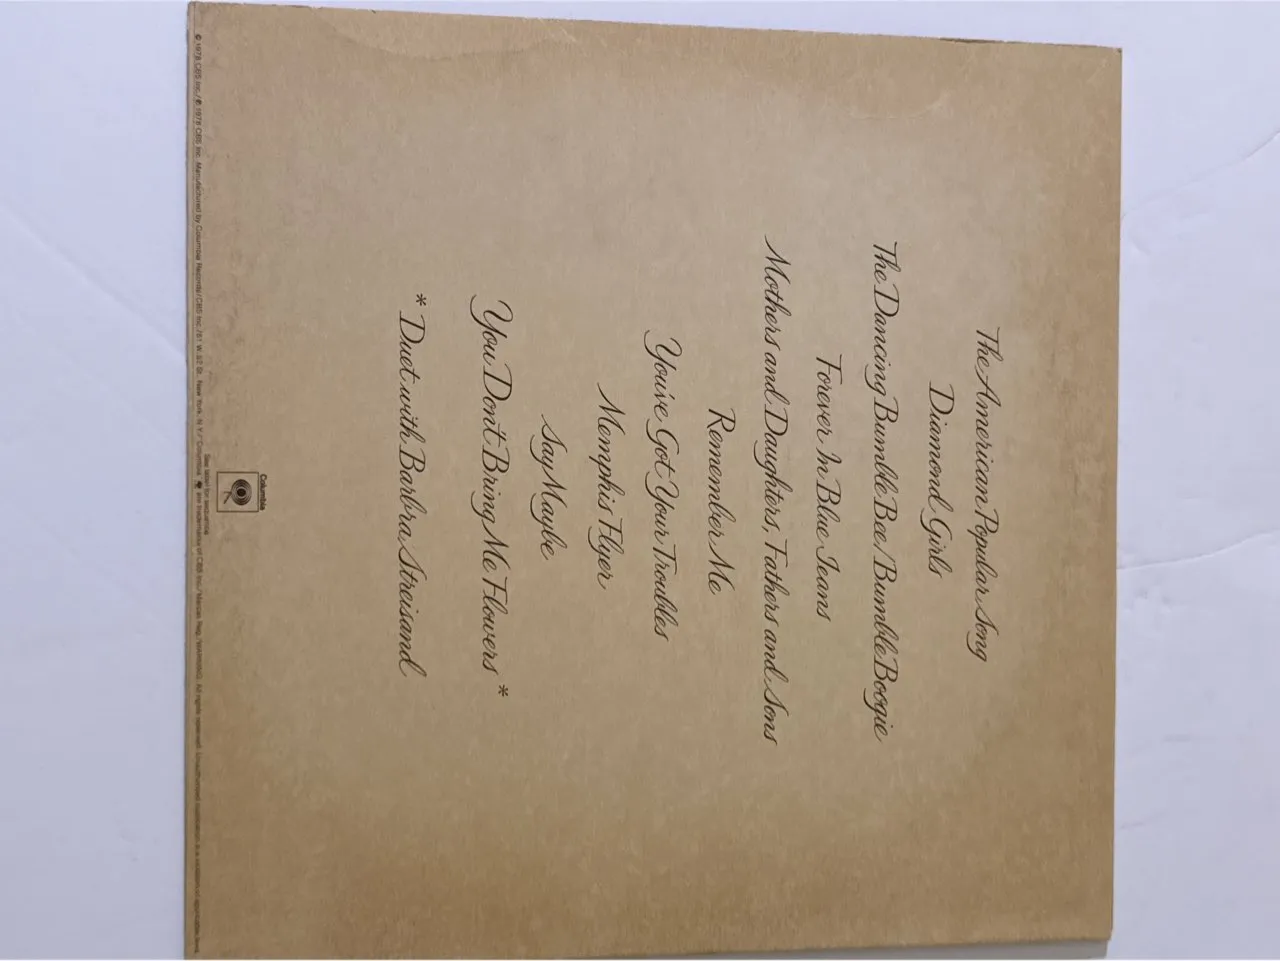 The American Popular Song
Diamond Girls
The Dancing Bumble Bee/Bumble Boogie
Forever In Blue Jeans
Mothers and Daughters, Fathers and Sons
Remember Me
You've Got Your Troubles
Memphis Flyer
Say Maybe
You Don't Bring Me Flowers *
* Duet with Barbra Streisand
Columbia
See label for sequence
© 1978 CBS Inc./℗ 1978 CBS Inc. Manufactured by Columbia Records/CBS Inc./51 W. 52 St., New York, N.Y./"Columbia," are trademarks of CBS Inc./Marcas Reg./WARNING: All rights reserved. Unauthorized duplication is a violation of applicable laws.